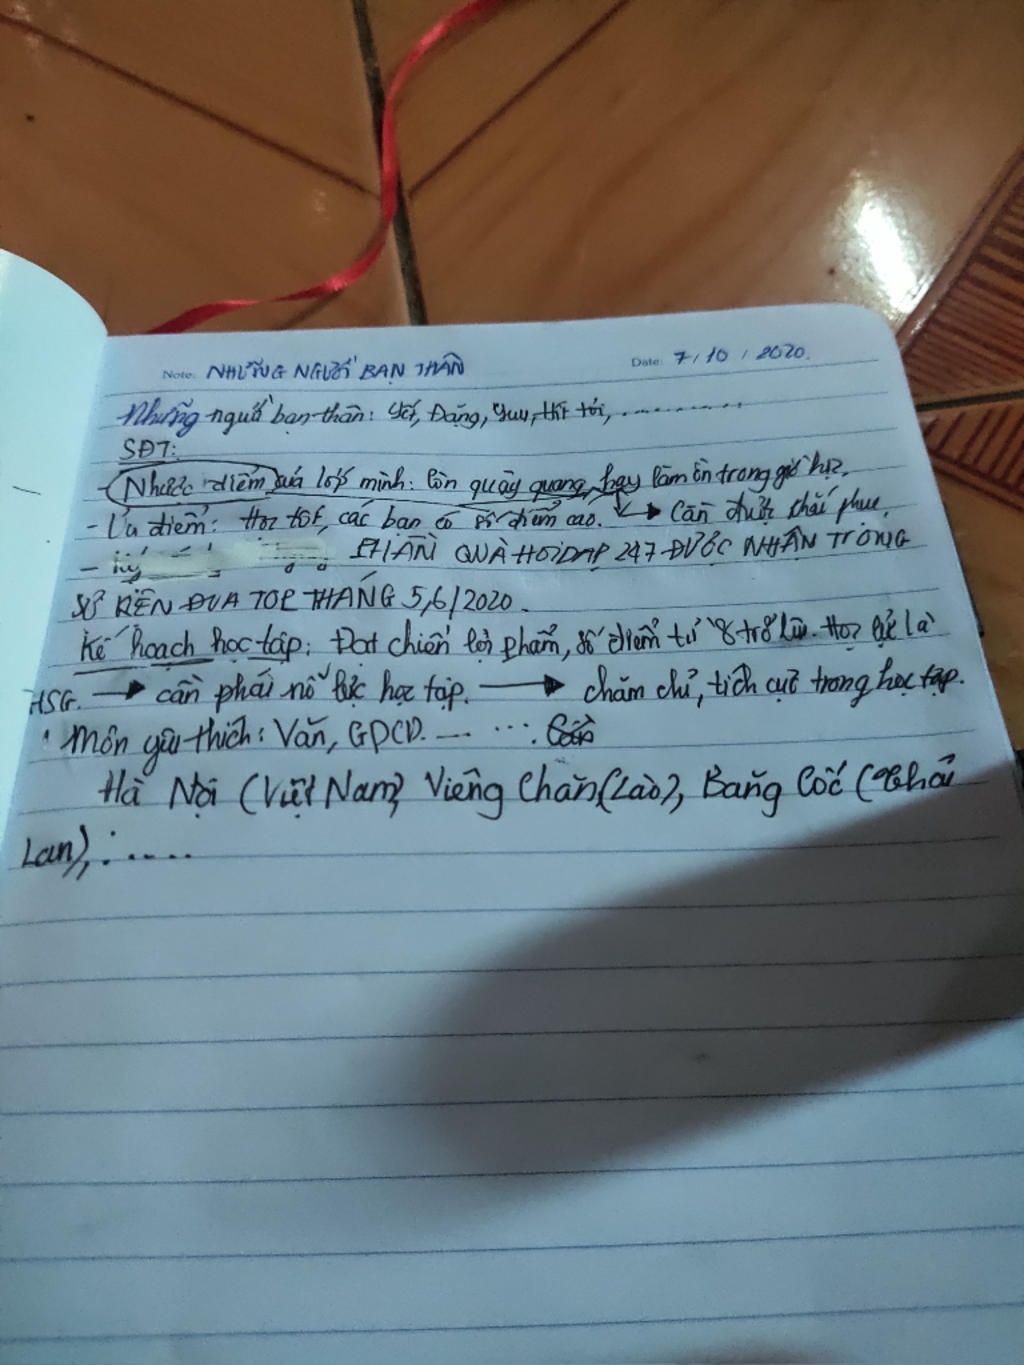 Note: NHỮNG NGƯỜI BẠN THÂN Date: 7/10/2020.
Những người bạn thân: Đăng,
SĐT:
- Nhược điểm của lớp mình: Còn quậy quang, hay làm ồn trong giờ học.
- Ưu điểm: Học tốt, các bạn có số điểm cao. → Cần được khắc phục.
- PHẦN QUÀ HOIDAP 247 ĐƯỢC NHẬN TRONG
SỰ KIỆN ĐUA TOP THÁNG 5,6/2020.
Kế hoạch học tập: Đạt chiến lợi phẩm, số điểm từ 8 trở lên. Học lực là
HSG. → cần phải nỗ lực học tập. → chăm chỉ, tích cực trong học tập.
Môn yêu thích: Văn, GDCD. ... ....
Hà Nội (Việt Nam), Viêng Chăn (Lào), Băng Cốc (Thái
Lan), .....